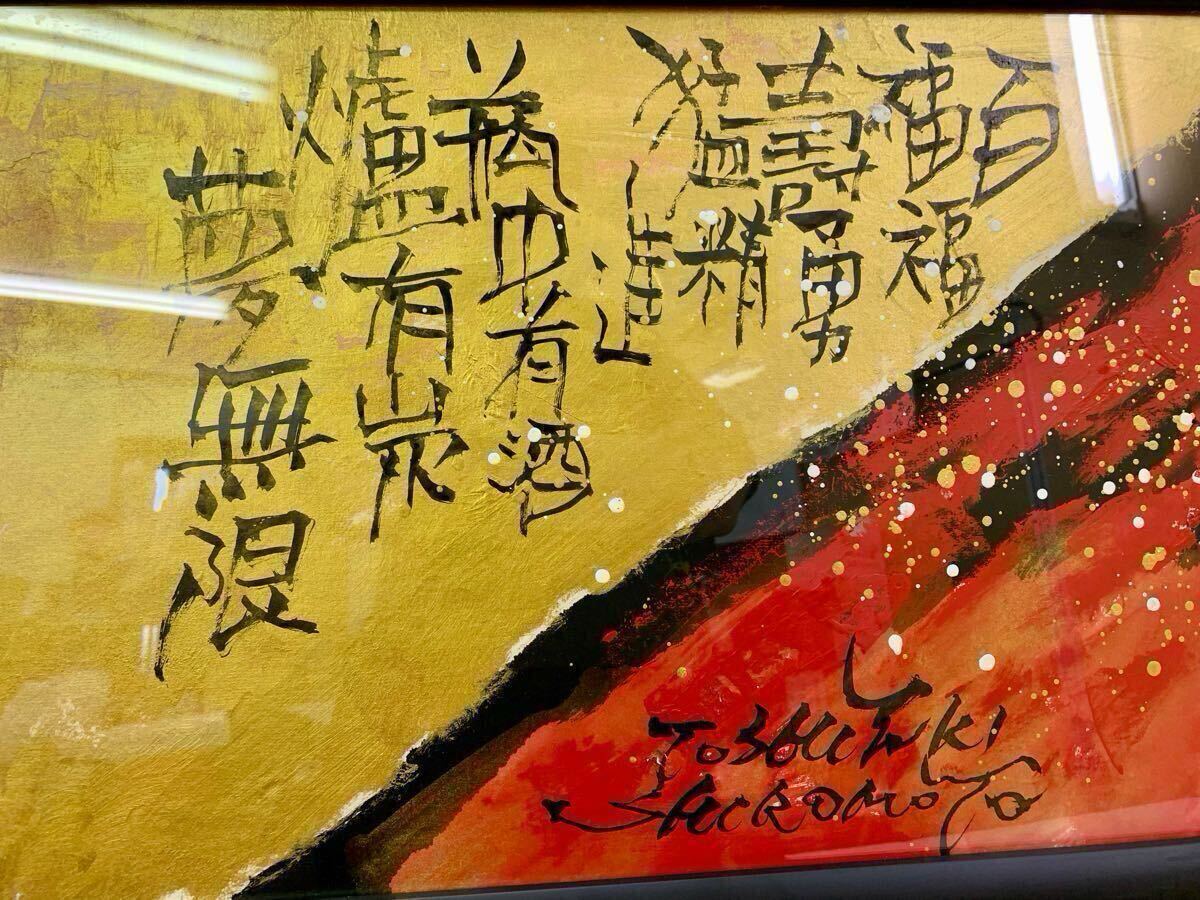 百
福福
壽勇
猛精
進
瓶中有酒
爐有炭
夢無限
TOSHIYUKI
SHIROMOTO